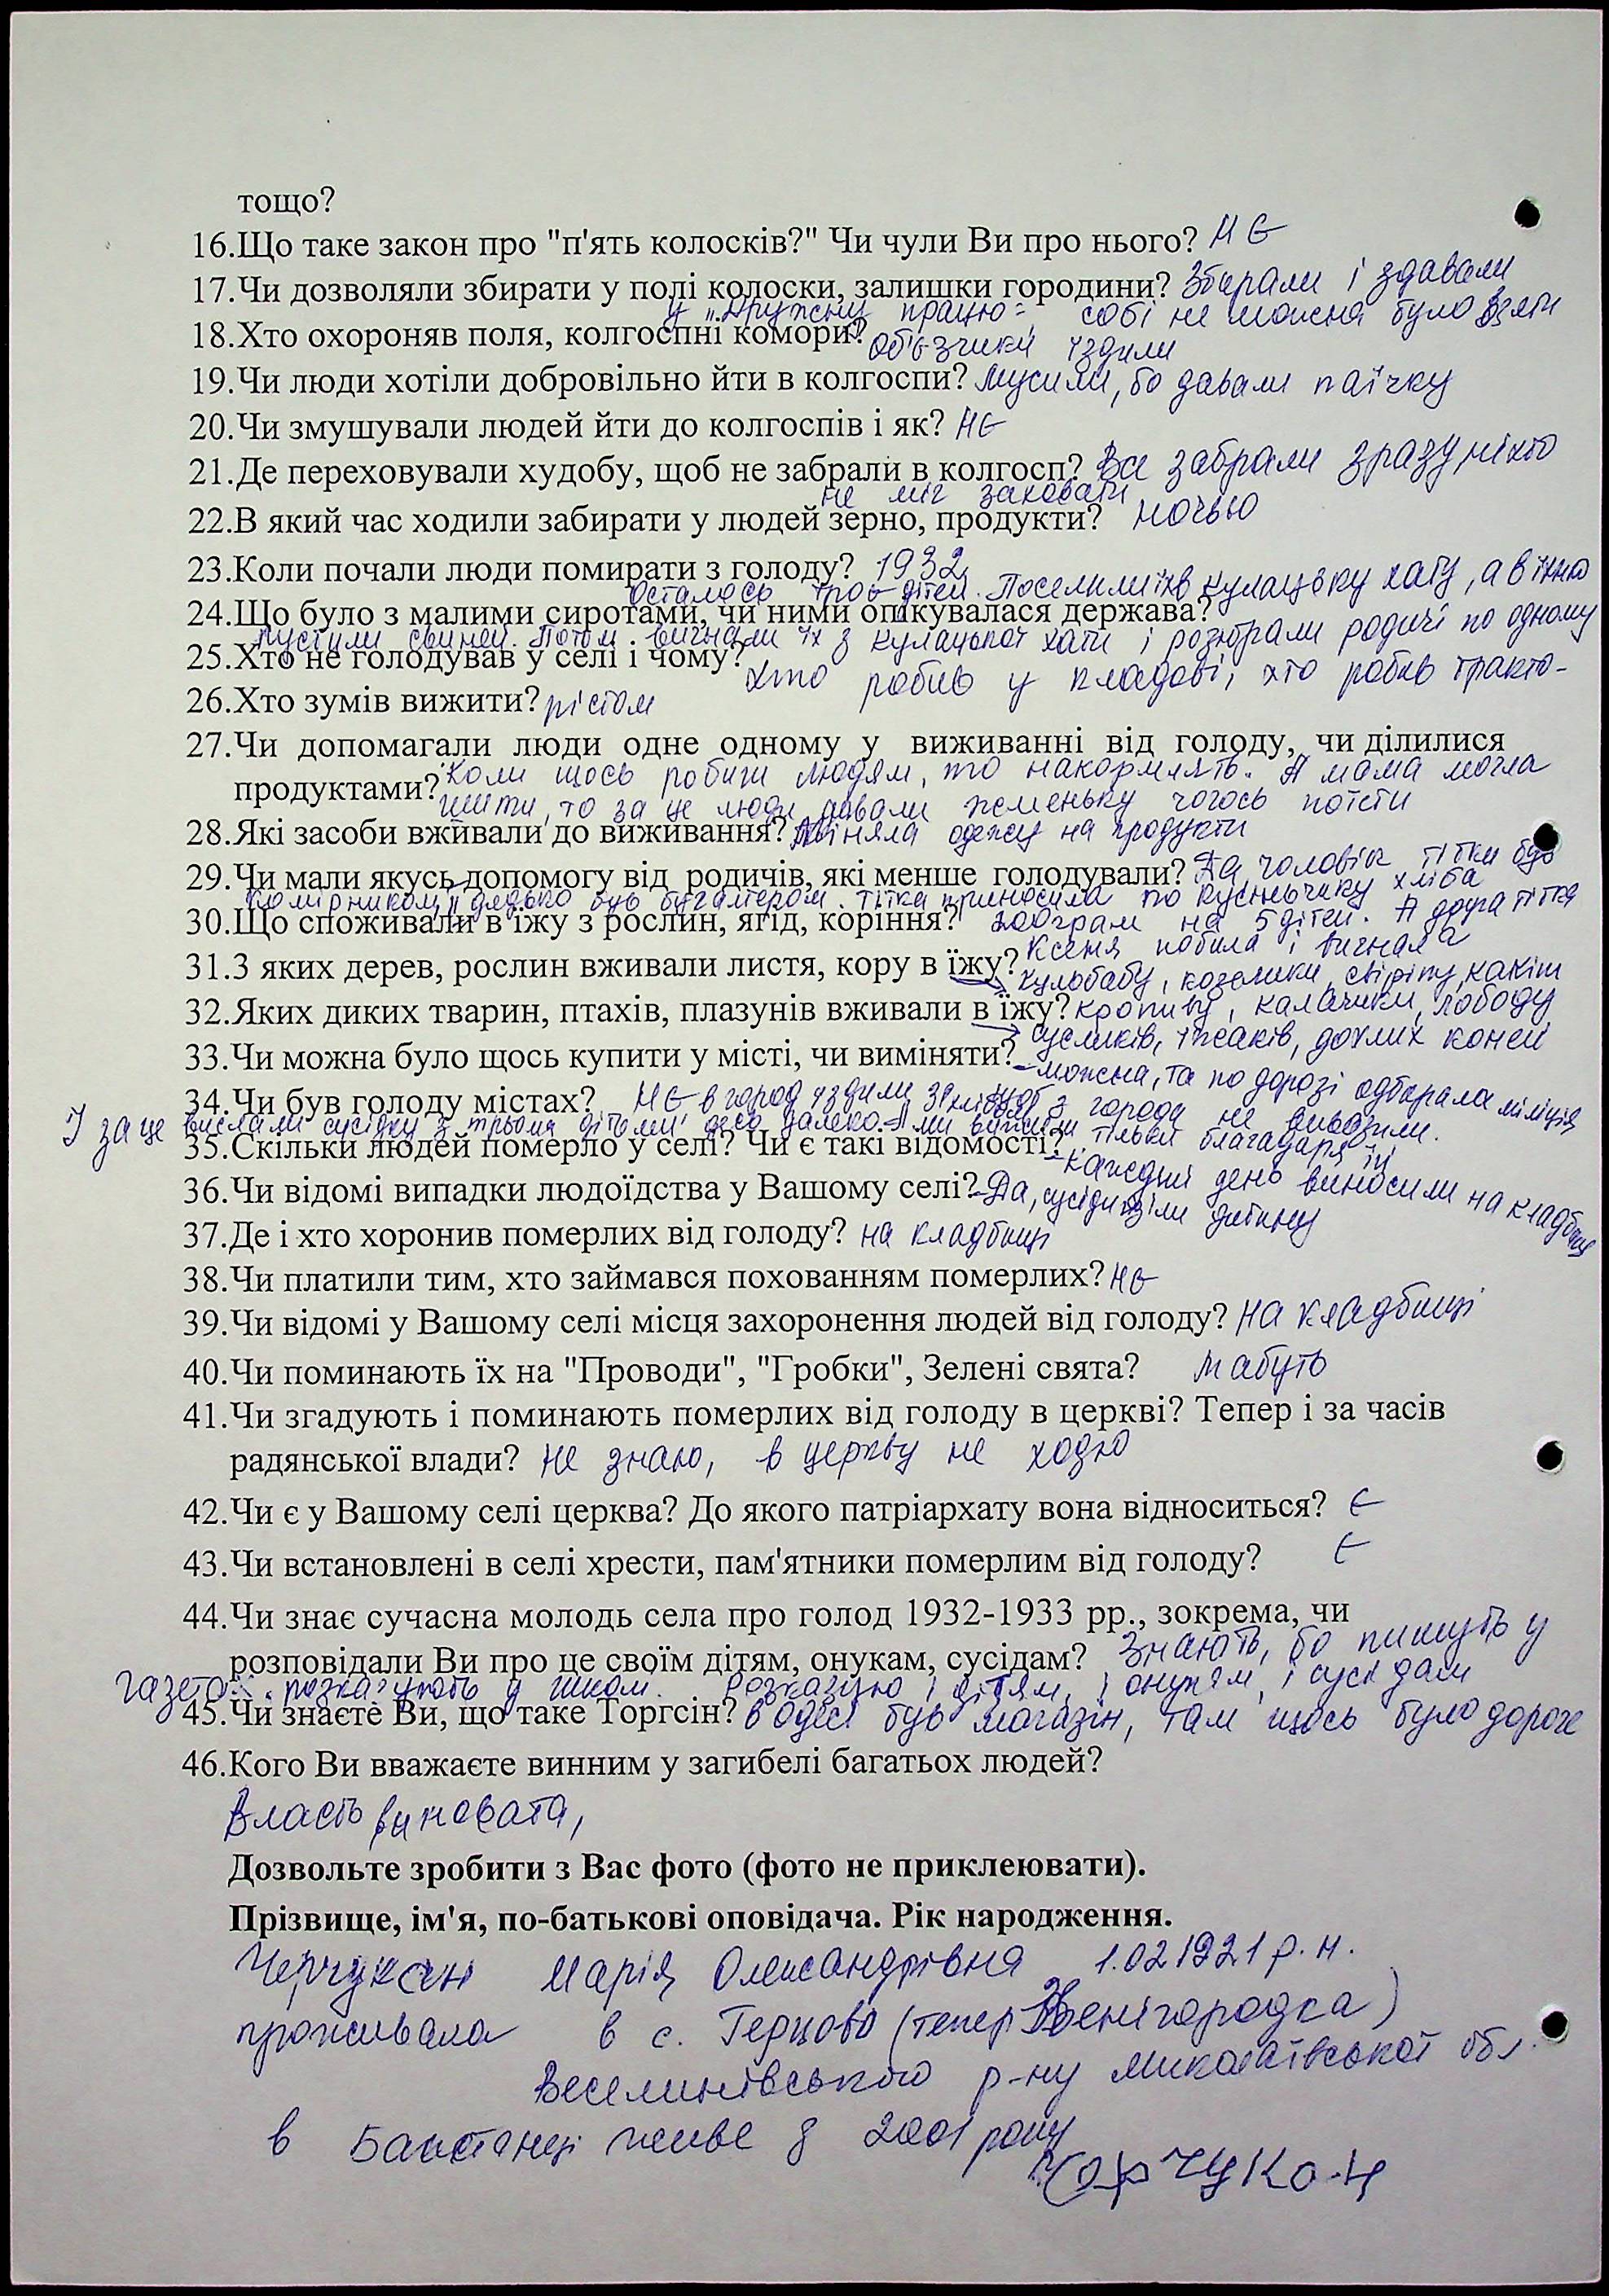 тощо?
16.Що таке закон про "п'ять колосків?" Чи чули Ви про нього? НЄ
17.Чи дозволяли збирати у полі колоски, залишки городини? Збирали і здавали
у "Дружну працю" собі не можна було взяти
18.Хто охороняв поля, колгоспні комори? Об'єзчики їздили
19.Чи люди хотіли добровільно йти в колгоспи? Мусили, бо давали паїчку
20.Чи змушували людей йти до колгоспів і як? НЄ
21.Де переховували худобу, щоб не забрали в колгосп? Все забрали зразу, ніхто
не міг заховати
22.В який час ходили забирати у людей зерно, продукти? Ночью
23.Коли почали люди помирати з голоду? 1932
Осталось троє дітей. Поселили їх в кулацьку хату, а в їхню
24.Що було з малими сиротами, чи ними опікувалася держава?
пустили свиней. Потом вигнали їх з кулацької хати і розібрали родичі по одному
25.Хто не голодував у селі і чому? Хто робив у кладові, хто робив тракто-
26.Хто зумів вижити? рістом
27.Чи допомагали люди одне одному у виживанні від голоду, чи ділилися
продуктами? Коли щось робиш людям, то накормлять. А мама могла
шити, то за це люди давали жменьку чогось поїсти
28.Які засоби вживали до виживання? Міняла одежу на продукти
29.Чи мали якусь допомогу від родичів, які менше голодували? Да, чоловік тітки був
комірником, дядько був бугалтером. Тітка приносила по кусльчику хліба
30.Що споживали в їжу з рослин, ягід, коріння? 200 грам на 5 дітей. А друга тітка
Ксеня побила і вигнала
31.З яких дерев, рослин вживали листя, кору в їжу? Кульбабу, козелики, свіріпу, какіш
32.Яких диких тварин, птахів, плазунів вживали в їжу? кропиву, калачики, лободу
сусликів, їжаків, дохлих коней
33.Чи можна було щось купити у місті, чи виміняти? - можна, та по дорозі одбирала міліція
34.Чи був голоду містах? НЄ в город їздили за хлібом з города не вивозили.
І за це вислали сусідку з трьома дітьми десь далеко. А ми вижили тільки благадаря їй
35.Скільки людей померло у селі? Чи є такі відомості? - Каждий день виносили на кладбище
36.Чи відомі випадки людоїдства у Вашому селі? - Да, сусіди з'їли дитину
37.Де і хто хоронив померлих від голоду? на кладбищі
38.Чи платили тим, хто займався похованням померлих? НЄ
39.Чи відомі у Вашому селі місця захоронення людей від голоду? На кладбищі
40.Чи поминають їх на "Проводи", "Гробки", Зелені свята? Мабуть
41.Чи згадують і поминають померлих від голоду в церкві? Тепер і за часів
радянської влади? Не знаю, в церкву не ходю
42.Чи є у Вашому селі церква? До якого патріархату вона відноситься? Є
43.Чи встановлені в селі хрести, пам'ятники померлим від голоду? Є
44.Чи знає сучасна молодь села про голод 1932-1933 рр., зокрема, чи
розповідали Ви про це своїм дітям, онукам, сусідам? Знають, бо пишуть у
газетах, розказують у школі. Розказую і дітям, і онукам, і сусідам
45.Чи знаєте Ви, що таке Торгсін? В Одесі був магазін, там щось було дороге
46.Кого Ви вважаєте винним у загибелі багатьох людей?
Власть виновата,
Дозвольте зробити з Вас фото (фото не приклеювати).
Прізвище, ім'я, по-батькові оповідача. Рік народження.
Марія Олександрівна 1.02 1921 р.н.
проживала в с. Герцово (тепер Звенігородка)
Веселинівського р-ну Миколаївської обл.
в Баштанці живе з 2001 року